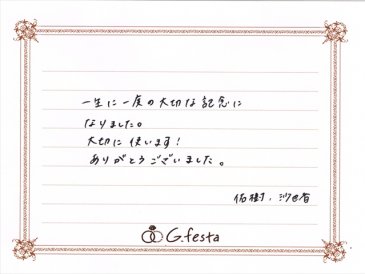 一生に一度の大切な記念に
なりました。
大切に使います!
ありがとうございました。
佑樹、沙也香
G.festa